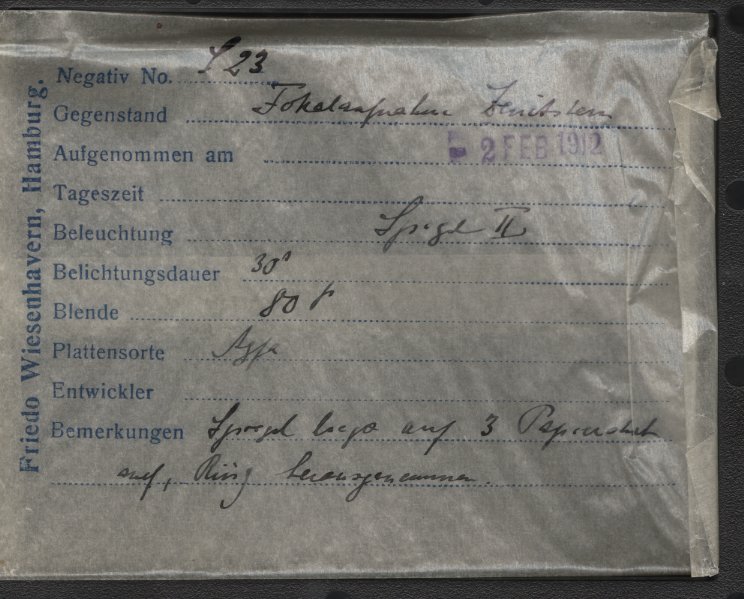 Friedo Wiesenhavern, Hamburg.
Negativ No. S 23
Gegenstand Fokalaufnahme Zenitstern
Aufgenommen am 2 FEB 1912
Tageszeit
Beleuchtung Spiegel II
Belichtungsdauer 30s
Blende 80
Plattensorte Agfa
Entwickler
Bemerkungen Spiegel liegt auf 3
auf, Ring herausgenommen.